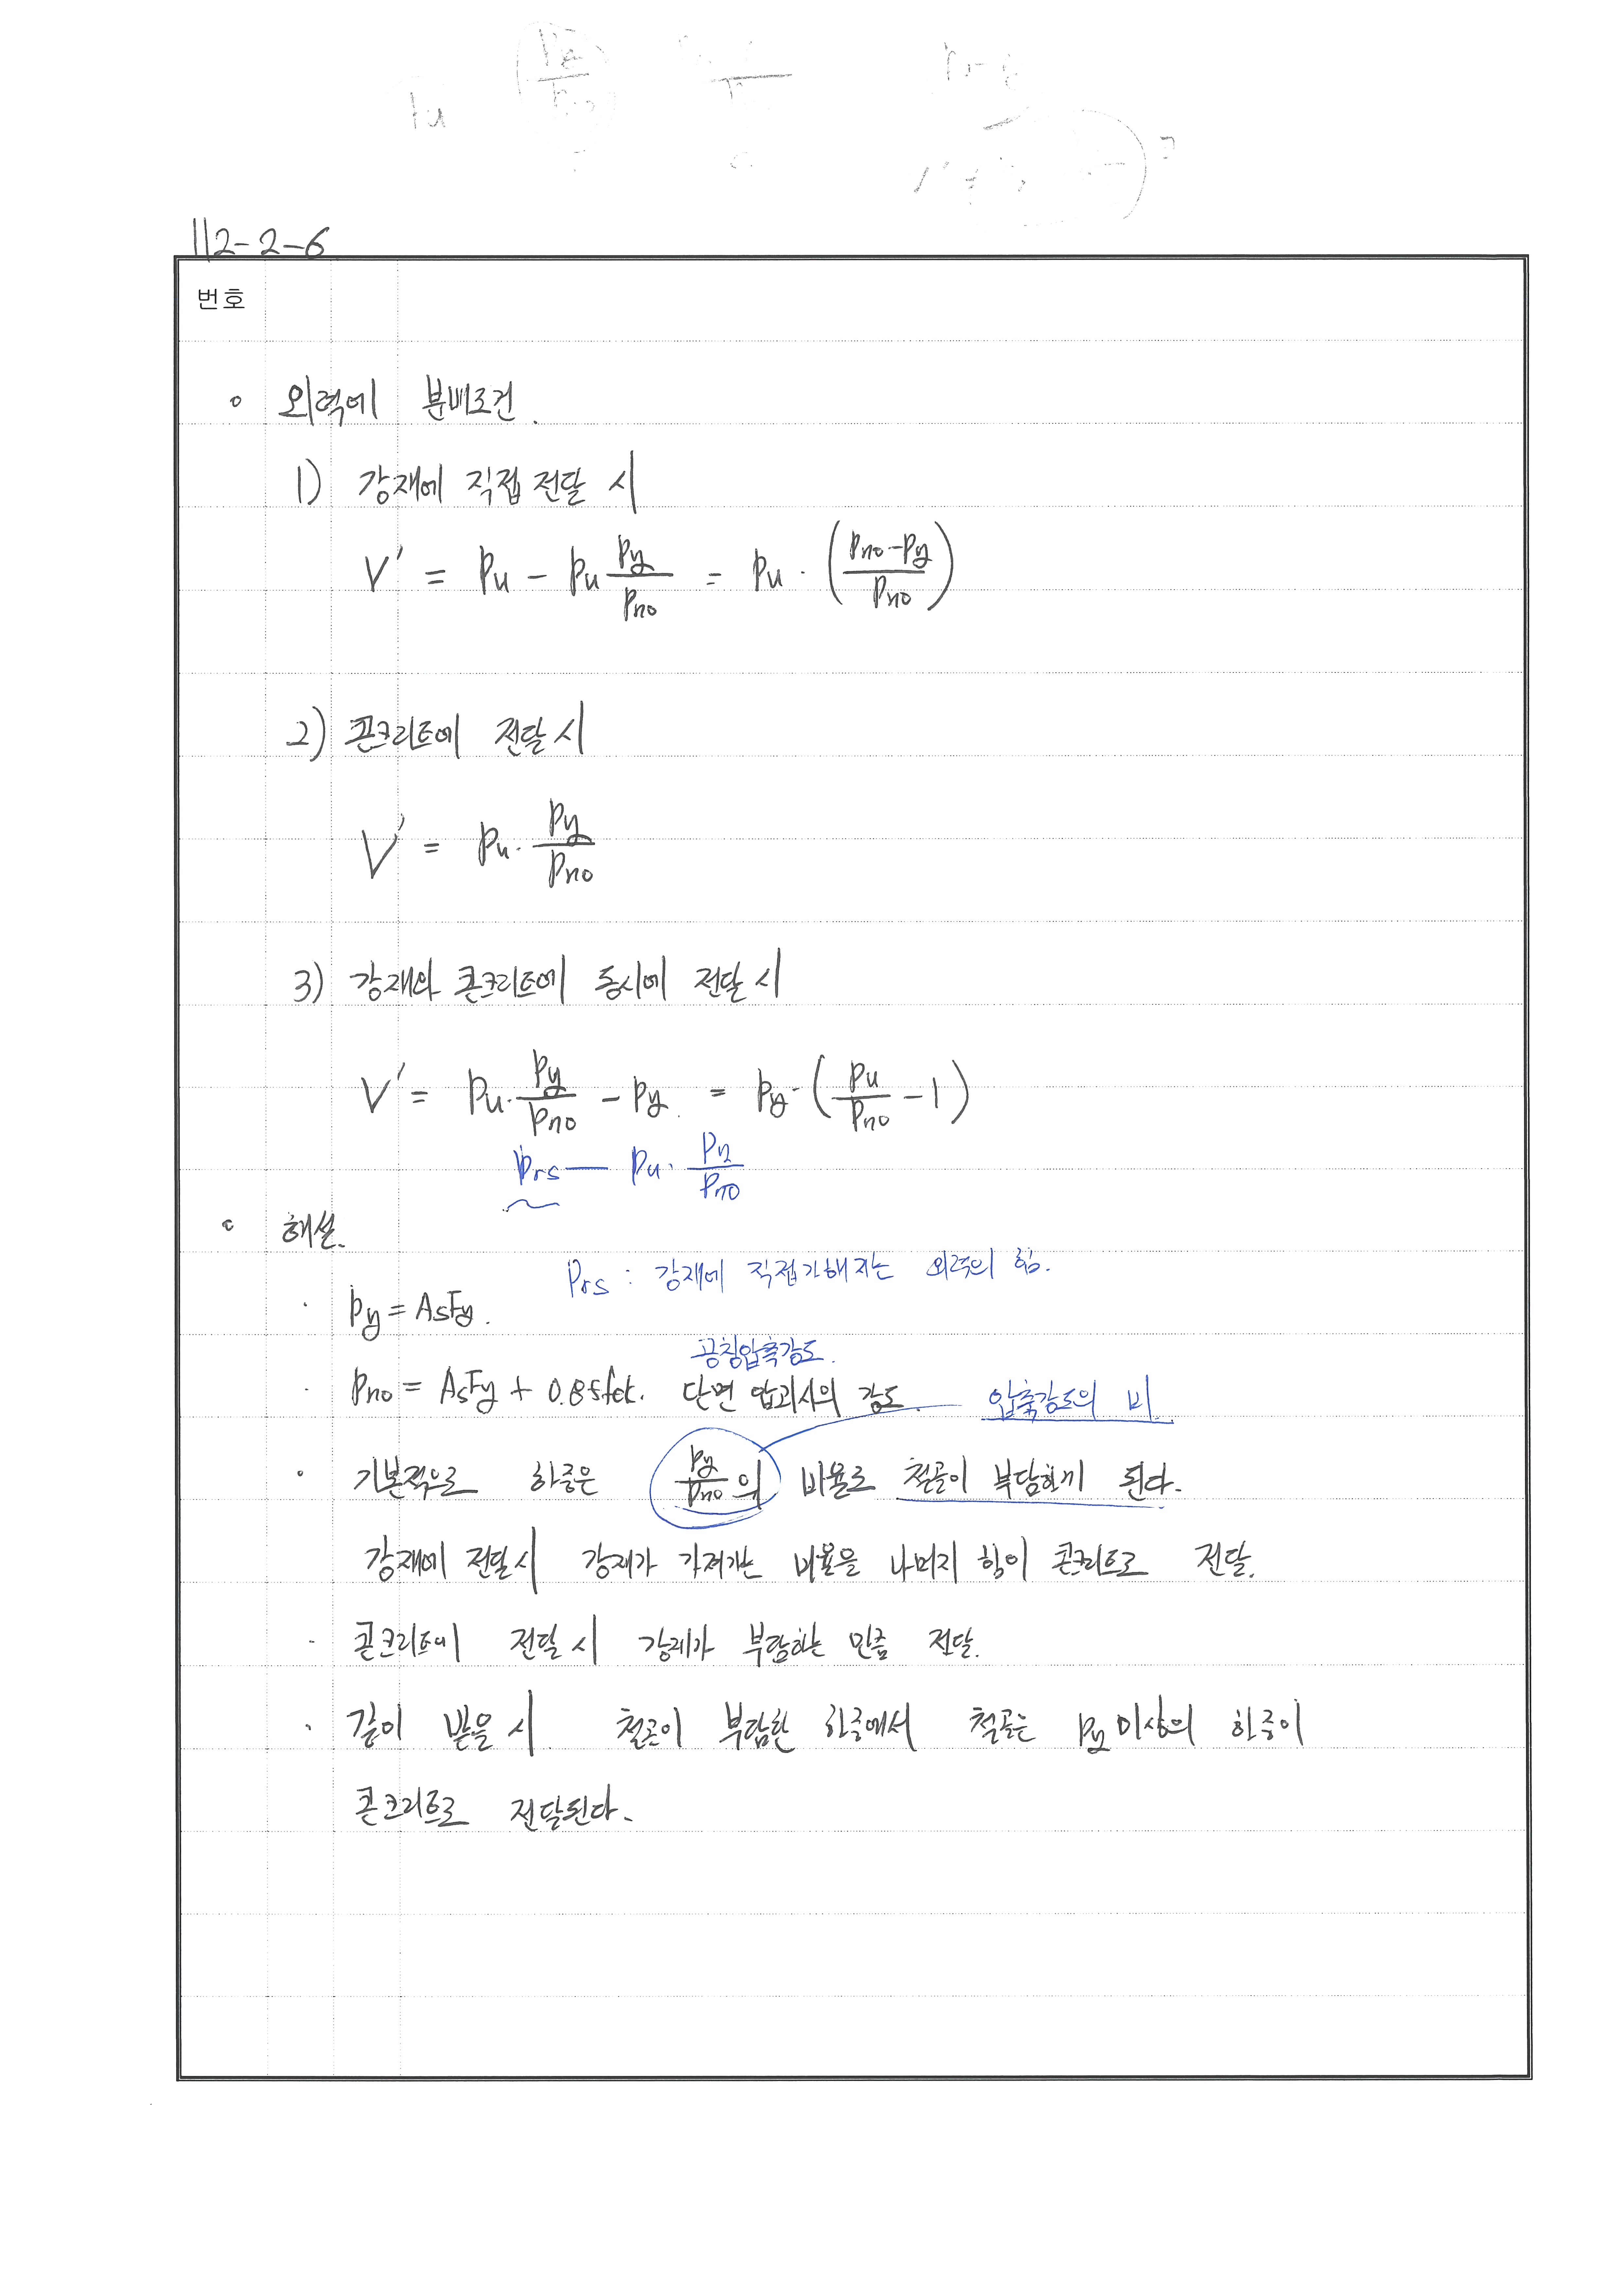 112-2-6
번호
◦ 외력에 분배조건.
1) 강재에 직접 전달 시
V' = Pu - Pu Py/Pno = Pu · (Pno-Py/Pno)
2) 콘크리트에 전달 시
V' = Pu · Py/Pno
3) 강재와 콘크리트에 동시에 전달 시
V' = Pu · Py/Pno - Py = Py · (Pu/Pno - 1)
Prs — Pu · Py/Pno
◦ 해설.
Prs : 강재에 직접가해지는 외력의 힘.
· Py = AsFy.
공칭압축강도.
· Pno = AsFy + 0.85fck. 단면 압괴시의 강도. 압축강도의 비
· 기본적으로 하중은 Py/Pno의 비율로 철골이 부담하게 된다.
강재에 전달시 강재가 가져가는 비율을 나머지 힘이 콘크리트로 전달.
· 콘크리트에 전달 시 강재가 부담하는 만큼 전달.
· 같이 받을 시 철골이 부담한 하중에서 철골은 Py 이상의 하중이
콘크리트로 전달된다.